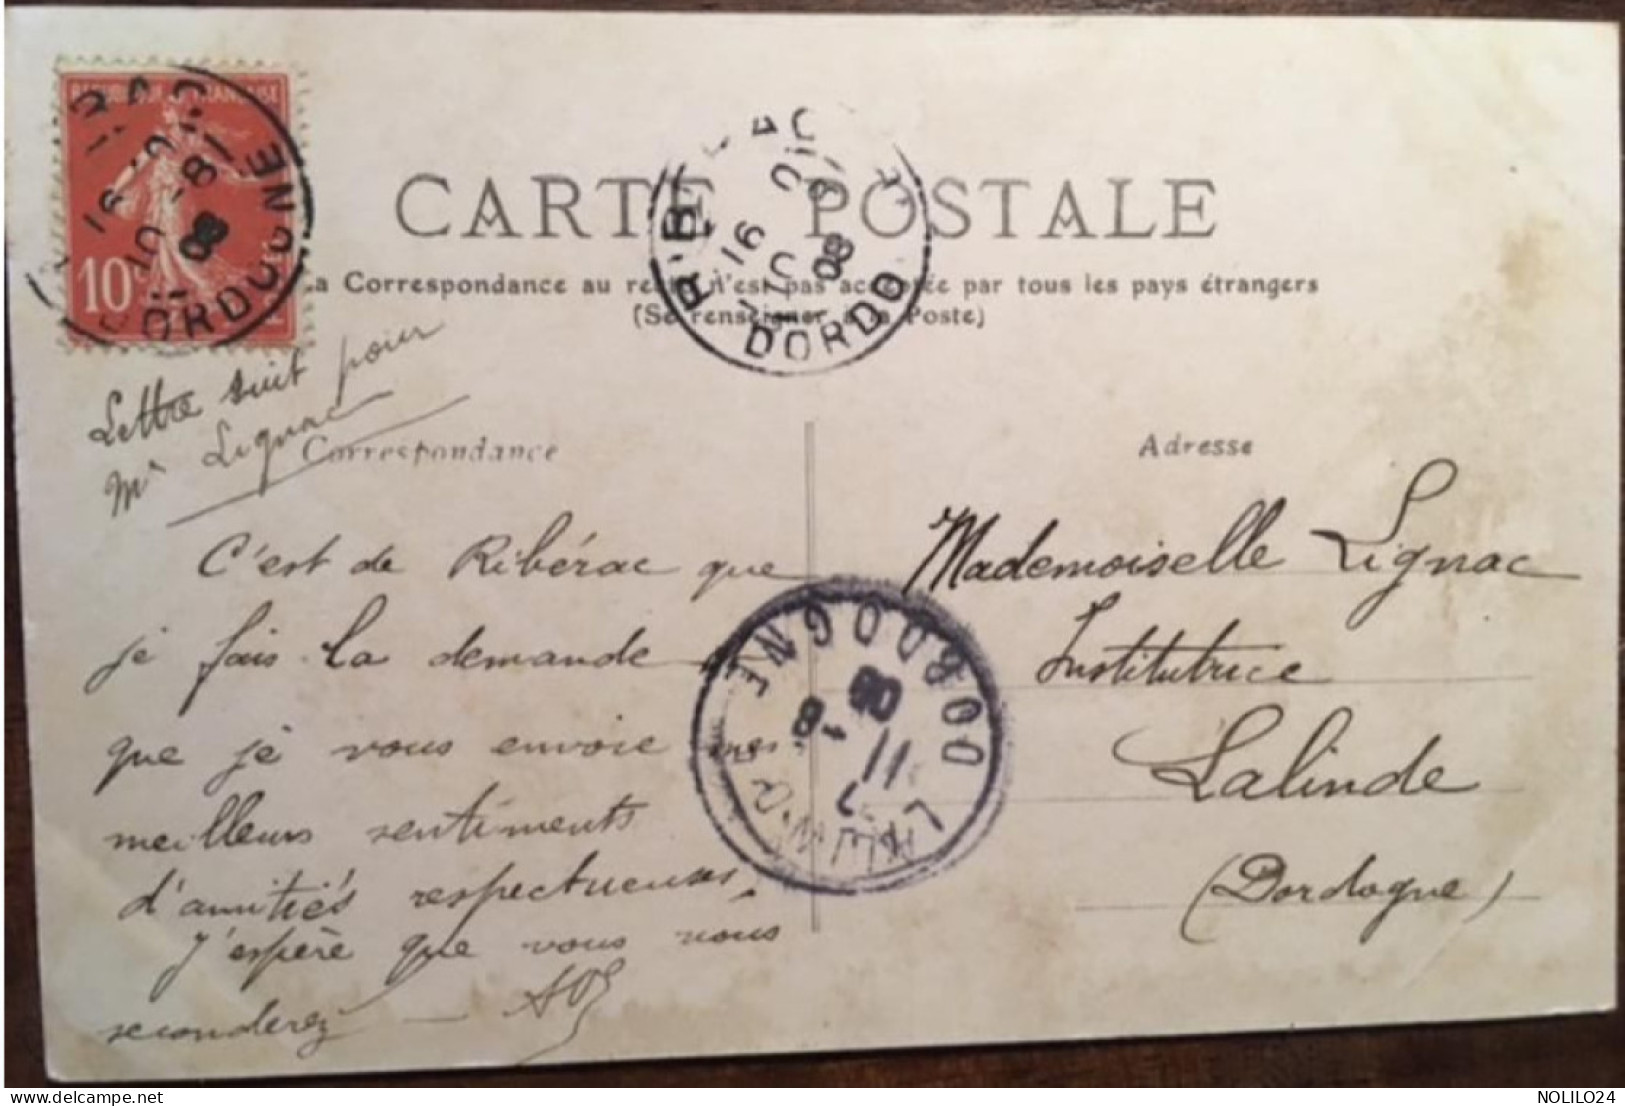 REPUBLIQUE FRANÇAISE
10c
DORDOGNE
16
10 -8
08
CARTE POSTALE
RIBERAC
16
10 -8
08
DORDOGNE
La Correspondance au recto n'est pas acceptée par tous les pays étrangers
(Se renseigner à la Poste)
Lettre suit pour
Mr Lignac
Correspondance
C'est de Ribérac que
je fais la demande
que je vous envoie mes
meilleurs sentiments
d'amitiés respectueuses.
J'espère que vous nous
seconderez —
Adresse
Mademoiselle Lignac
Institutrice
Lalinde
(Dordogne)
LALINDE
7
11 -8
08
DORDOGNE
NOLILO24